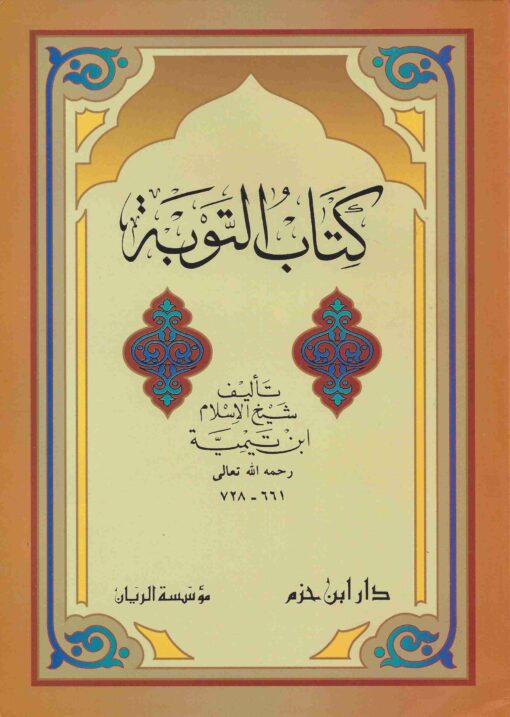 كِتَابُ التَّوْبَة
تأليف
شيخ الإسلام
ابن تيميّة
رحمه الله تعالى
٦٦١ - ٧٢٨
دار ابن حزم
مؤسّسة الريّان